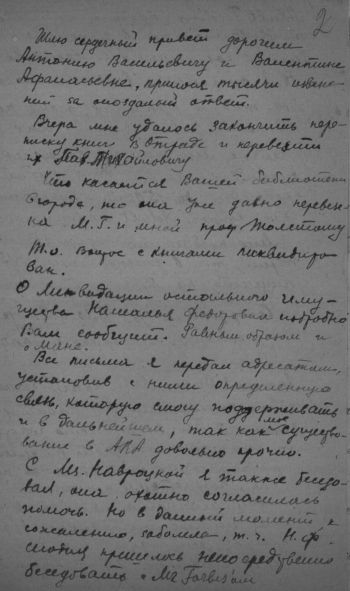 2
Шлю сердечный привет дорогим
Антонию Васильевичу и Валентине
Афанасьевне, приношу тысячи извине-
ний за опоздалый ответ.
Вчера мне удалось закончить пере-
писку книг в Отраде и перевезти
их Пав. Михайловичу
Что касается Вашей библиотеки
в городе, то она уже давно перевезе-
на М.Г. и мной проф. Толстому.
Т.о. вопрос с книгами ликвидиро-
ван.
О ликвидации остального иму-
щества Наталья Федоровна подробно
Вам сообщит. Главным образом и
о Мачне.
Все письма я передал адресатам,
установив с ними определенную
связь, которую смогу поддерживать
и в дальнейшем, так как мое существо-
вание в АРА довольно прочно.
С Ms. Навроцкой я также беседо-
вал, она охотно согласилась
помочь. Но в данный момент, к
сожалению, заболела, т.ч. Н.Ф.
сегодня пришлось непосредственно
беседовать с Mr Forbes'ом